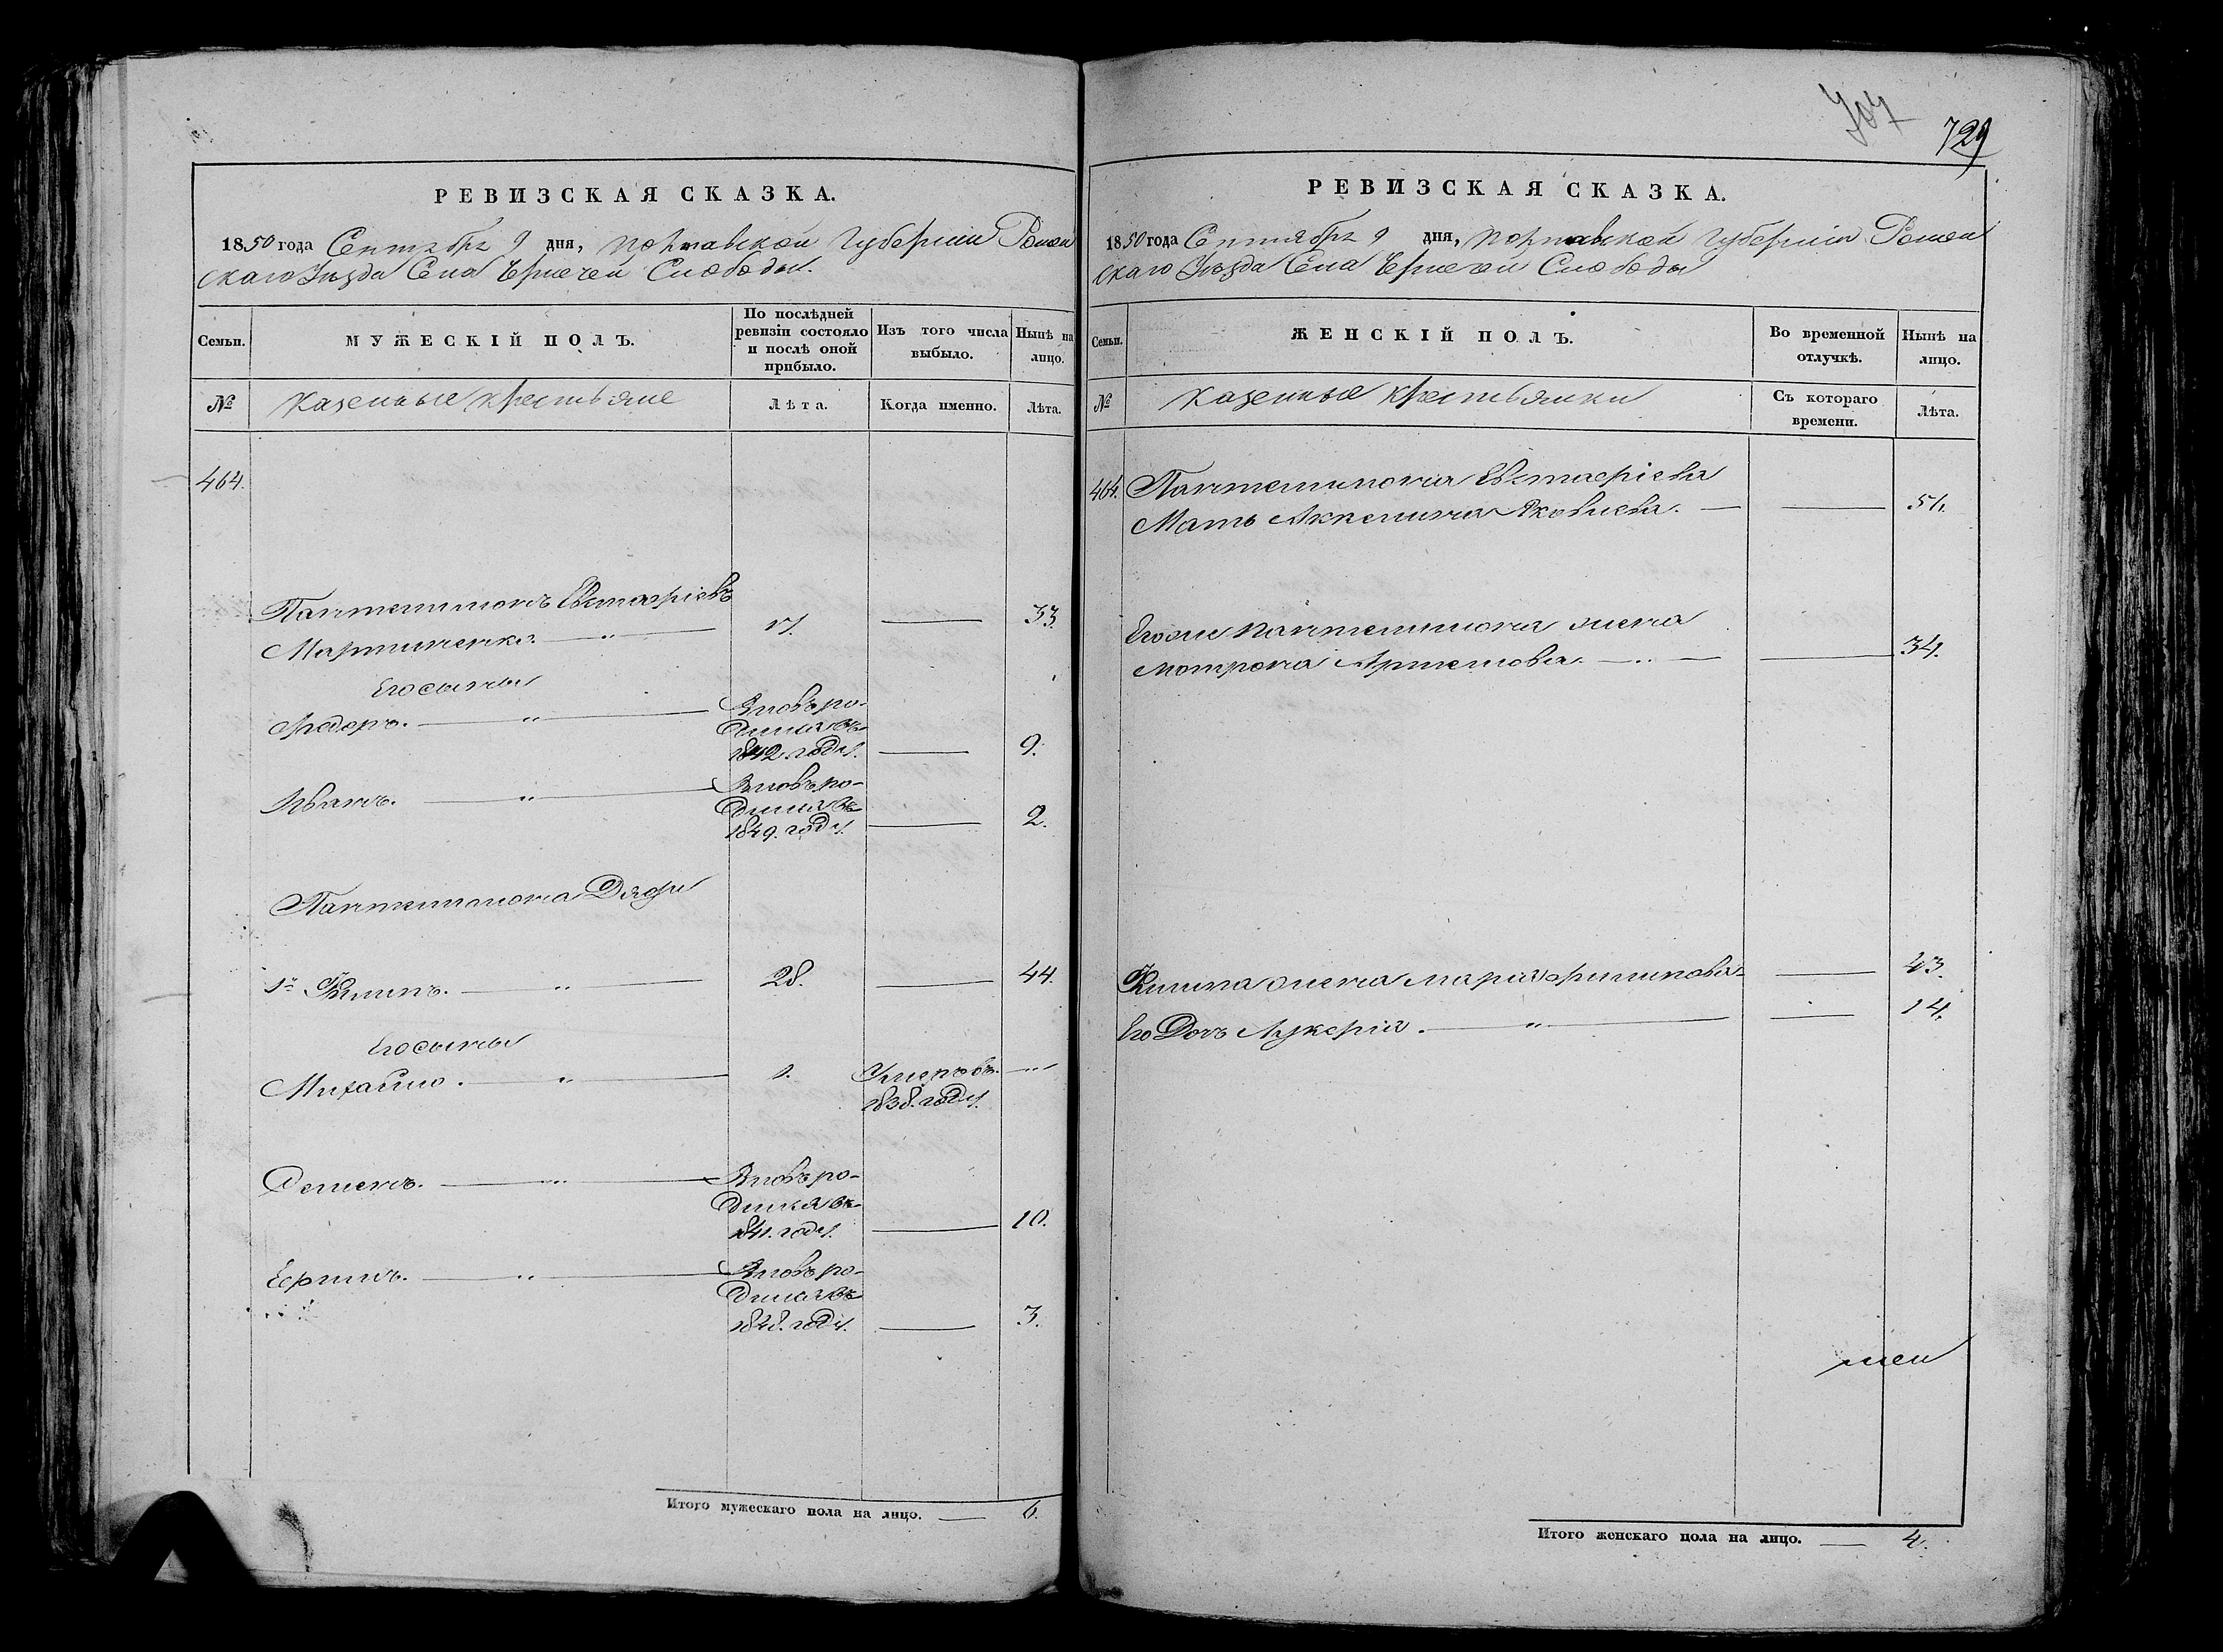 РЕВИЗСКАЯ СКАЗКА.
1850 года Сентября 9 дня, Полтавской Губернии Ромен
скаго Уезда Села Чернечей Слободы.
Семьи.
МУЖЕСКІЙ ПОЛЪ.
По послѣдней ревизіи состояло и послѣ оной прибыло.
Изъ того числа выбыло.
Нынѣ на лицо.
№
Казенные крестьяне
Лѣта.
Когда именно.
Лѣта.
464.
Пантелимонъ Евстафіевъ
Мартиненко. 17. 33.
Его сыны
Федоръ. Вновь ро-
дился въ
1842. году. 9.
Иванъ. Вновь ро-
дился въ
1849. году. 2.
Пантелимона Дяди
1й Филипъ. 28. 44.
Его сыны
Михайло. 1. Умеръ въ
1838. году.
Семенъ. Вновь ро-
дился въ
1841. году. 10.
Ефимъ. Вновь ро-
дился въ
1848. году. 3.
Итого мужескаго пола на лицо. 6.
707
729
РЕВИЗСКАЯ СКАЗКА.
1850 года Сентября 9 дня, Полтавской Губерніи Ромен
скаго Уезда Села Чернечей Слободы
Семьи.
ЖЕНСКІЙ ПОЛЪ.
Во временной отлучкѣ.
Нынѣ на лицо.
№
Казенные крестьянки
Съ котораго времени.
Лѣта.
464. Пантелимона Евстафіева
Мать Акелина Яковлева. 51.
Его же Пантелимона жена
Мотрона Артемова. 34.
Филипа жена Марія Филипова 43.
Его Дочь Лукерія. 14.
Итого женскаго пола на лицо. 4.